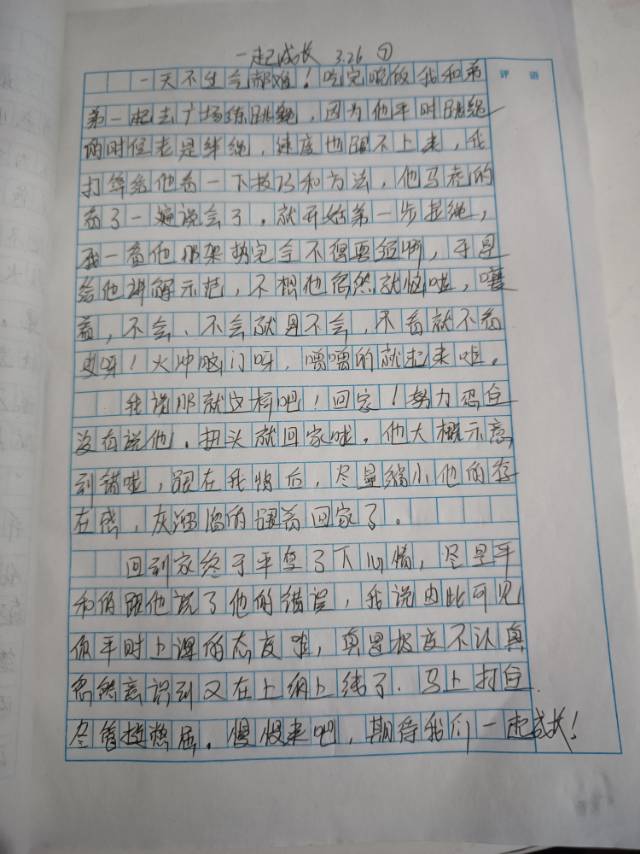 一起成长 3.26 ①
评语
一天不生气都难！吃完晚饭我和弟
弟一起去广场练跳绳，因为他平时跳绳
的时候老是绊绳，速度也跟不上来，我
打算给他看一下技巧和方法，他马虎的
看了一遍说会了。就开始第一步摇绳，
我一看他那架势完全不得要领啊，于是
给他讲解示范，不想他居然就恼啦，嚷
着，不会、不会就是不会，不看就不看
哎呀！火冲脑门呀，噌噌的就起来啦。
我说那就这样吧！回家！努力忍住
没有说他。扭头就回家啦。他大概示意
到错啦，跟在我背后，尽量缩小他的存
在感，灰溜溜的跟着回家了。
回到家终于平复了下心情，尽量平
和的跟他说了他的错误，我说由此可见
你平时上课的态度啦，真是极度不认真
忽然意识到又在上纲上线了.马上打住
慢慢来吧，期待我们一起成长！